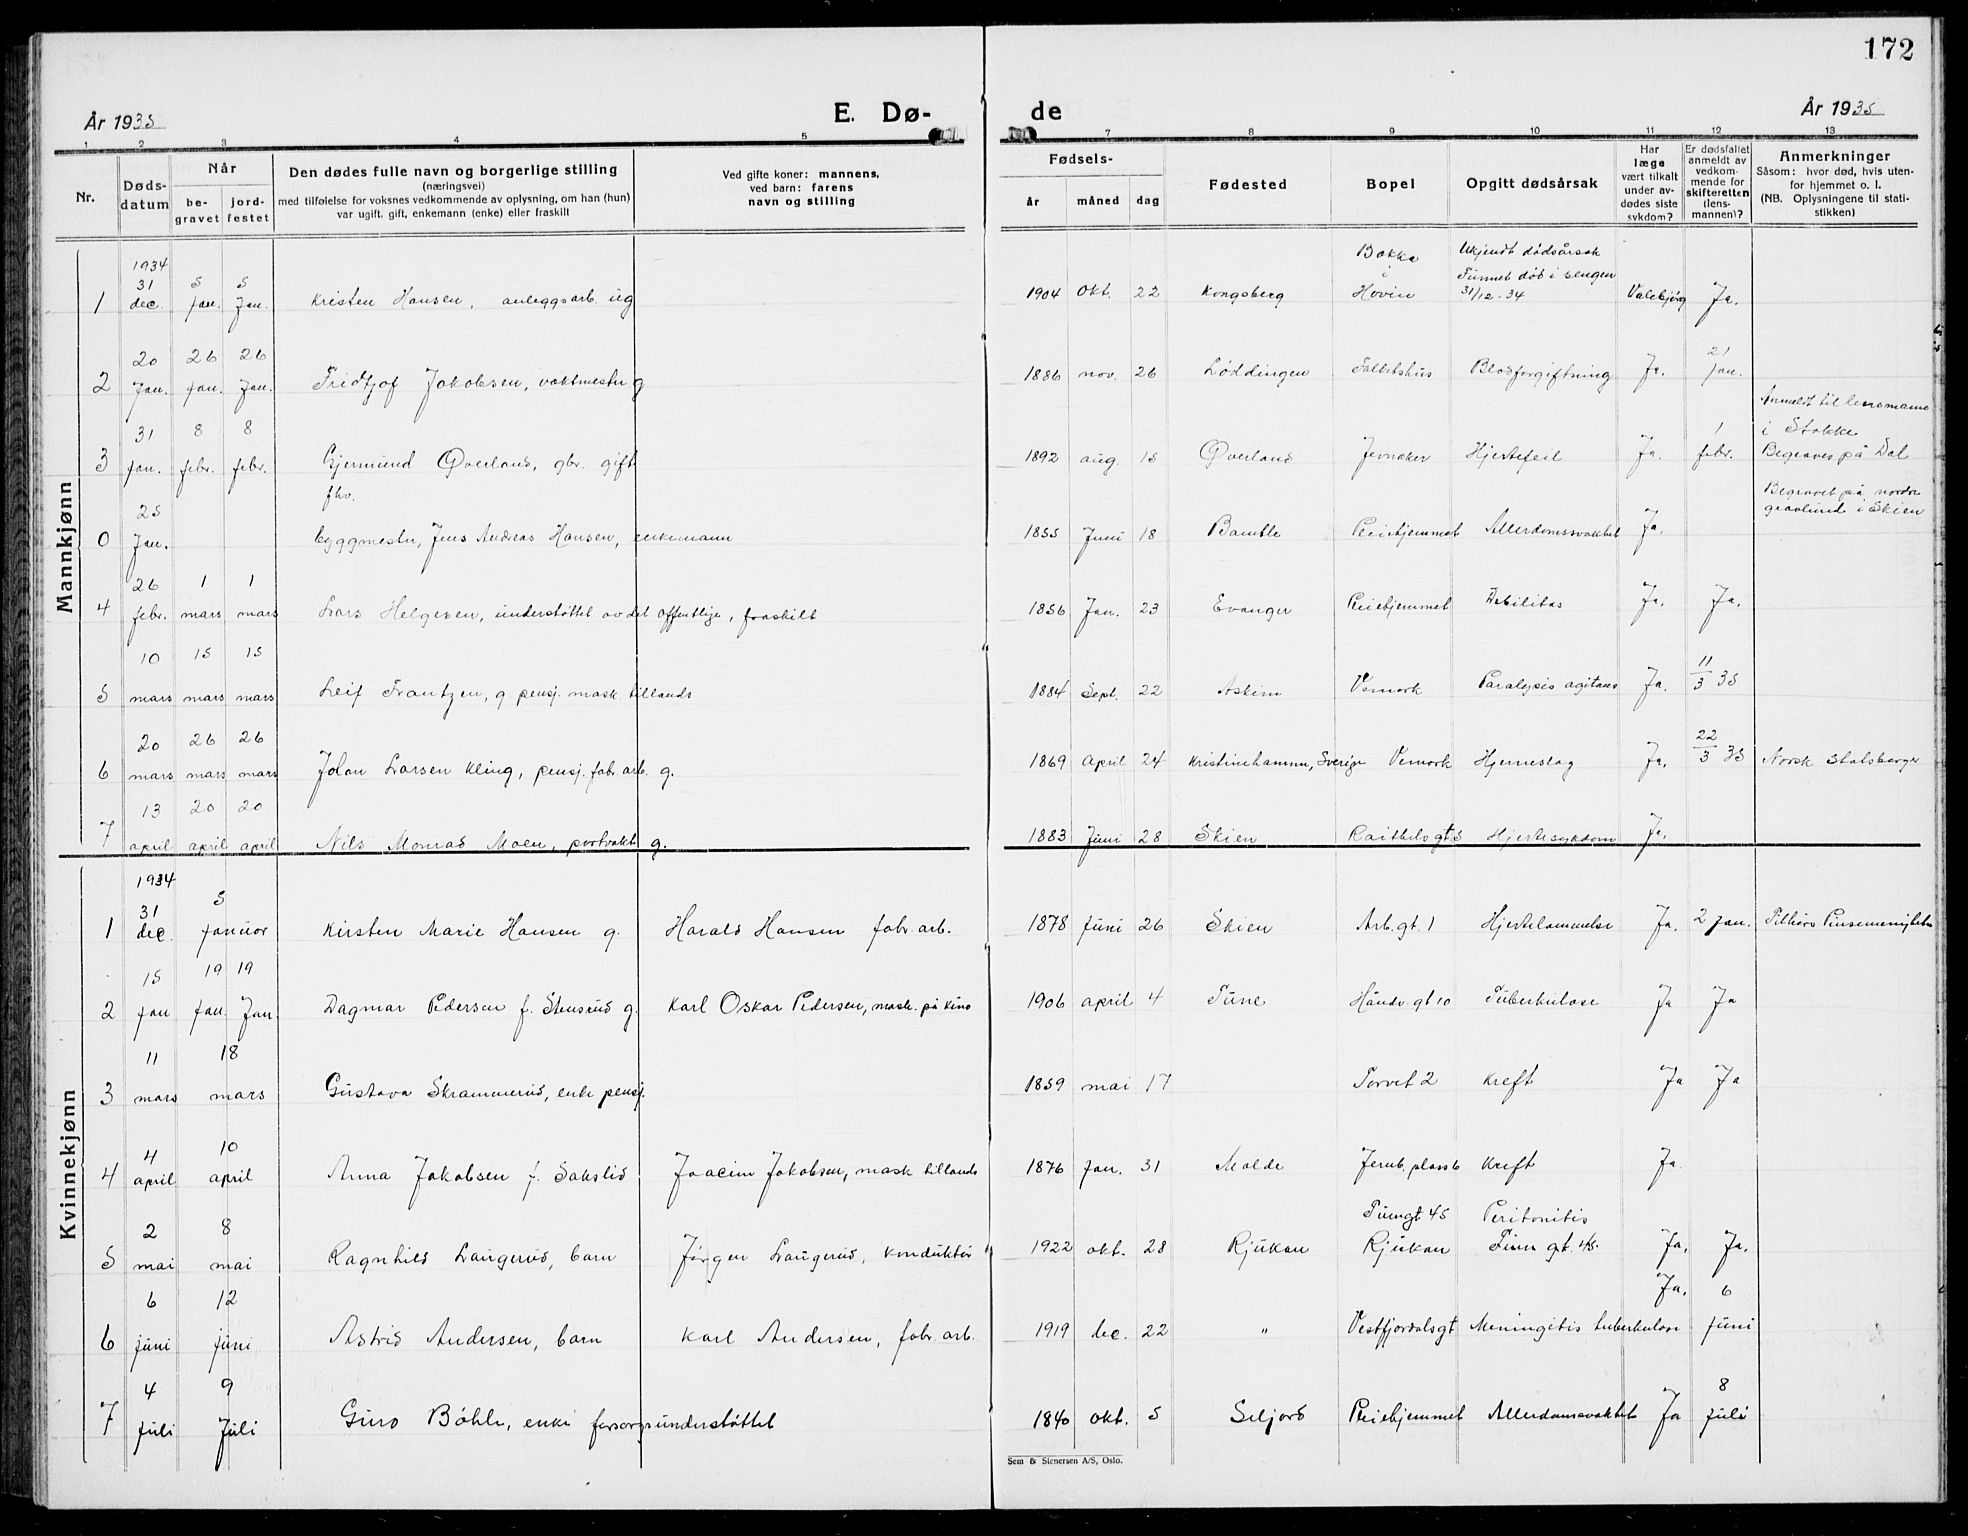 172
År 1935
E. Dø-
de
År 1935
1 2 3 4 5 7 8 9 10 11 12 13
Nr.
Døds-
datum
Når
be-
gravet
jord-
festet
Den dødes fulle navn og borgerlige stilling
(næringsvei)
med tilføielse for voksnes vedkommende av oplysning, om han (hun)
var ugift, gift, enkemann (enke) eller fraskilt
Ved gifte koner: mannens,
ved barn: farens
navn og stilling
Fødsels-
år måned dag
Fødested
Bopel
Opgitt dødsårsak
Har
læge
vært tilkalt
under av-
dødes siste
sykdom?
Er dødsfallet
anmeldt av
vedkom-
mende for
skifteretten
(lens-
mannen)?
Anmerkninger
Såsom: hvor død, hvis uten-
for hjemmet o. l.
(NB. Oplysningene til stati-
stikken)
Mannkjønn
1934 Bakka Ukjendt dødsårsak
31 5 5 i Funnet død i sengen
1 dec. jan. Jan. Kristen Hansen, anleggsarb. ug 1904 okt. 22 Kongsberg Hovin 31/12-34 Ja.
20 26 26 21
2 Jan. jan. Jan. Fridtjof Jakobsen, vaktmester g 1886 nov. 26 Løddingen Folketshus Blodforgiftning Ja. jan.
Anmeldt til lensmann
31 8 8 1 i Stokke
3 jan. febr. febr. Gjermund Øverland, gbr. gift 1892 aug. 15 Øverland Jevnaker Hjertefeil Ja. febr. Begraves på Dal
fhv. Begravet på nordre
25 gravlund i Skien
0 Jan. byggmester, Jens Andreas Hansen, enkemann 1855 Juni 18 Bamble Pleiehjemmet Allerdomssvakhet Ja.
26 1 1
4 febr. mars mars Lars Helgesen, understøttet av det offentlige, fraskilt 1856 Jan. 23 Evanger Pleiehjemmet Debilitas Ja. Ja.
10 15 15 11
5 mars mars mars Leif Frantzen, g. pensj. mask. tillands 1884 Sept. 22 Askim Vemork Paralysis agitans Ja. 3 35
20 26 26 22
6 mars mars mars Johan Larsen Kling, pensj. fabr. arb. g. 1869 april 24 Kristinehamn, Sverige Vemork Hjerneslag Ja. 3 35 Norsk Statsborger
13 20 20
7 april april april Nils Monrad Moen, portvakt g. 1883 Juni 28 Skien Hjertesykdom Ja.
Kvinnekjønn
1934
31 5
1 dec. januar Kirsten Marie Hansen g. Harald Hansen fabr. arb. 1878 Juni 26 Skien Arb. gt. 1 Hjertelammelse Ja. 2 jan. Tilhører Pinsemenigheten
15 19 19
2 jan jan. Jan. Dagmar Pedersen f. Stensrud g. Karl Oskar Pedersen, mask. på Kino 1906 april 4 Tune Håndv. gt 10 Tuberkulose Ja Ja
11 18
3 mars mars Gustava Skrammerud, enke pensj. 1859 mai 17 Torvet 2 Kreft Ja Ja
4 10
4 april april Anna Jakobsen f. Sakslid. Joacim Jakobsen, mask tillands 1876 Jan. 31 Molde Jernb. plass 6 Kreft Ja.
2 8 Tinngt 45 Peritonitis
5 mai mai Ragnhild Laugerud, barn Jørgen Laugerud, konduktør 1922 okt. 28 Rjukan Rjukan Tinn gt. 45. Ja. Ja.
6 12 Ja. 6
6 juni juni Astrid Andersen, barn Karl Andersen, fabr. arb. 1919 dec. 22 " Vestfjordalsgt Meningitis tuberkulose juni
4 9 8
7 juli Juli Guro Bøhle, enke forsorgsunderstøttet 1840 okt. 5 Seljord Pleiehjemmet Allerdomsvakhet Ja juli
Sem & Stenersen A/S, Oslo.